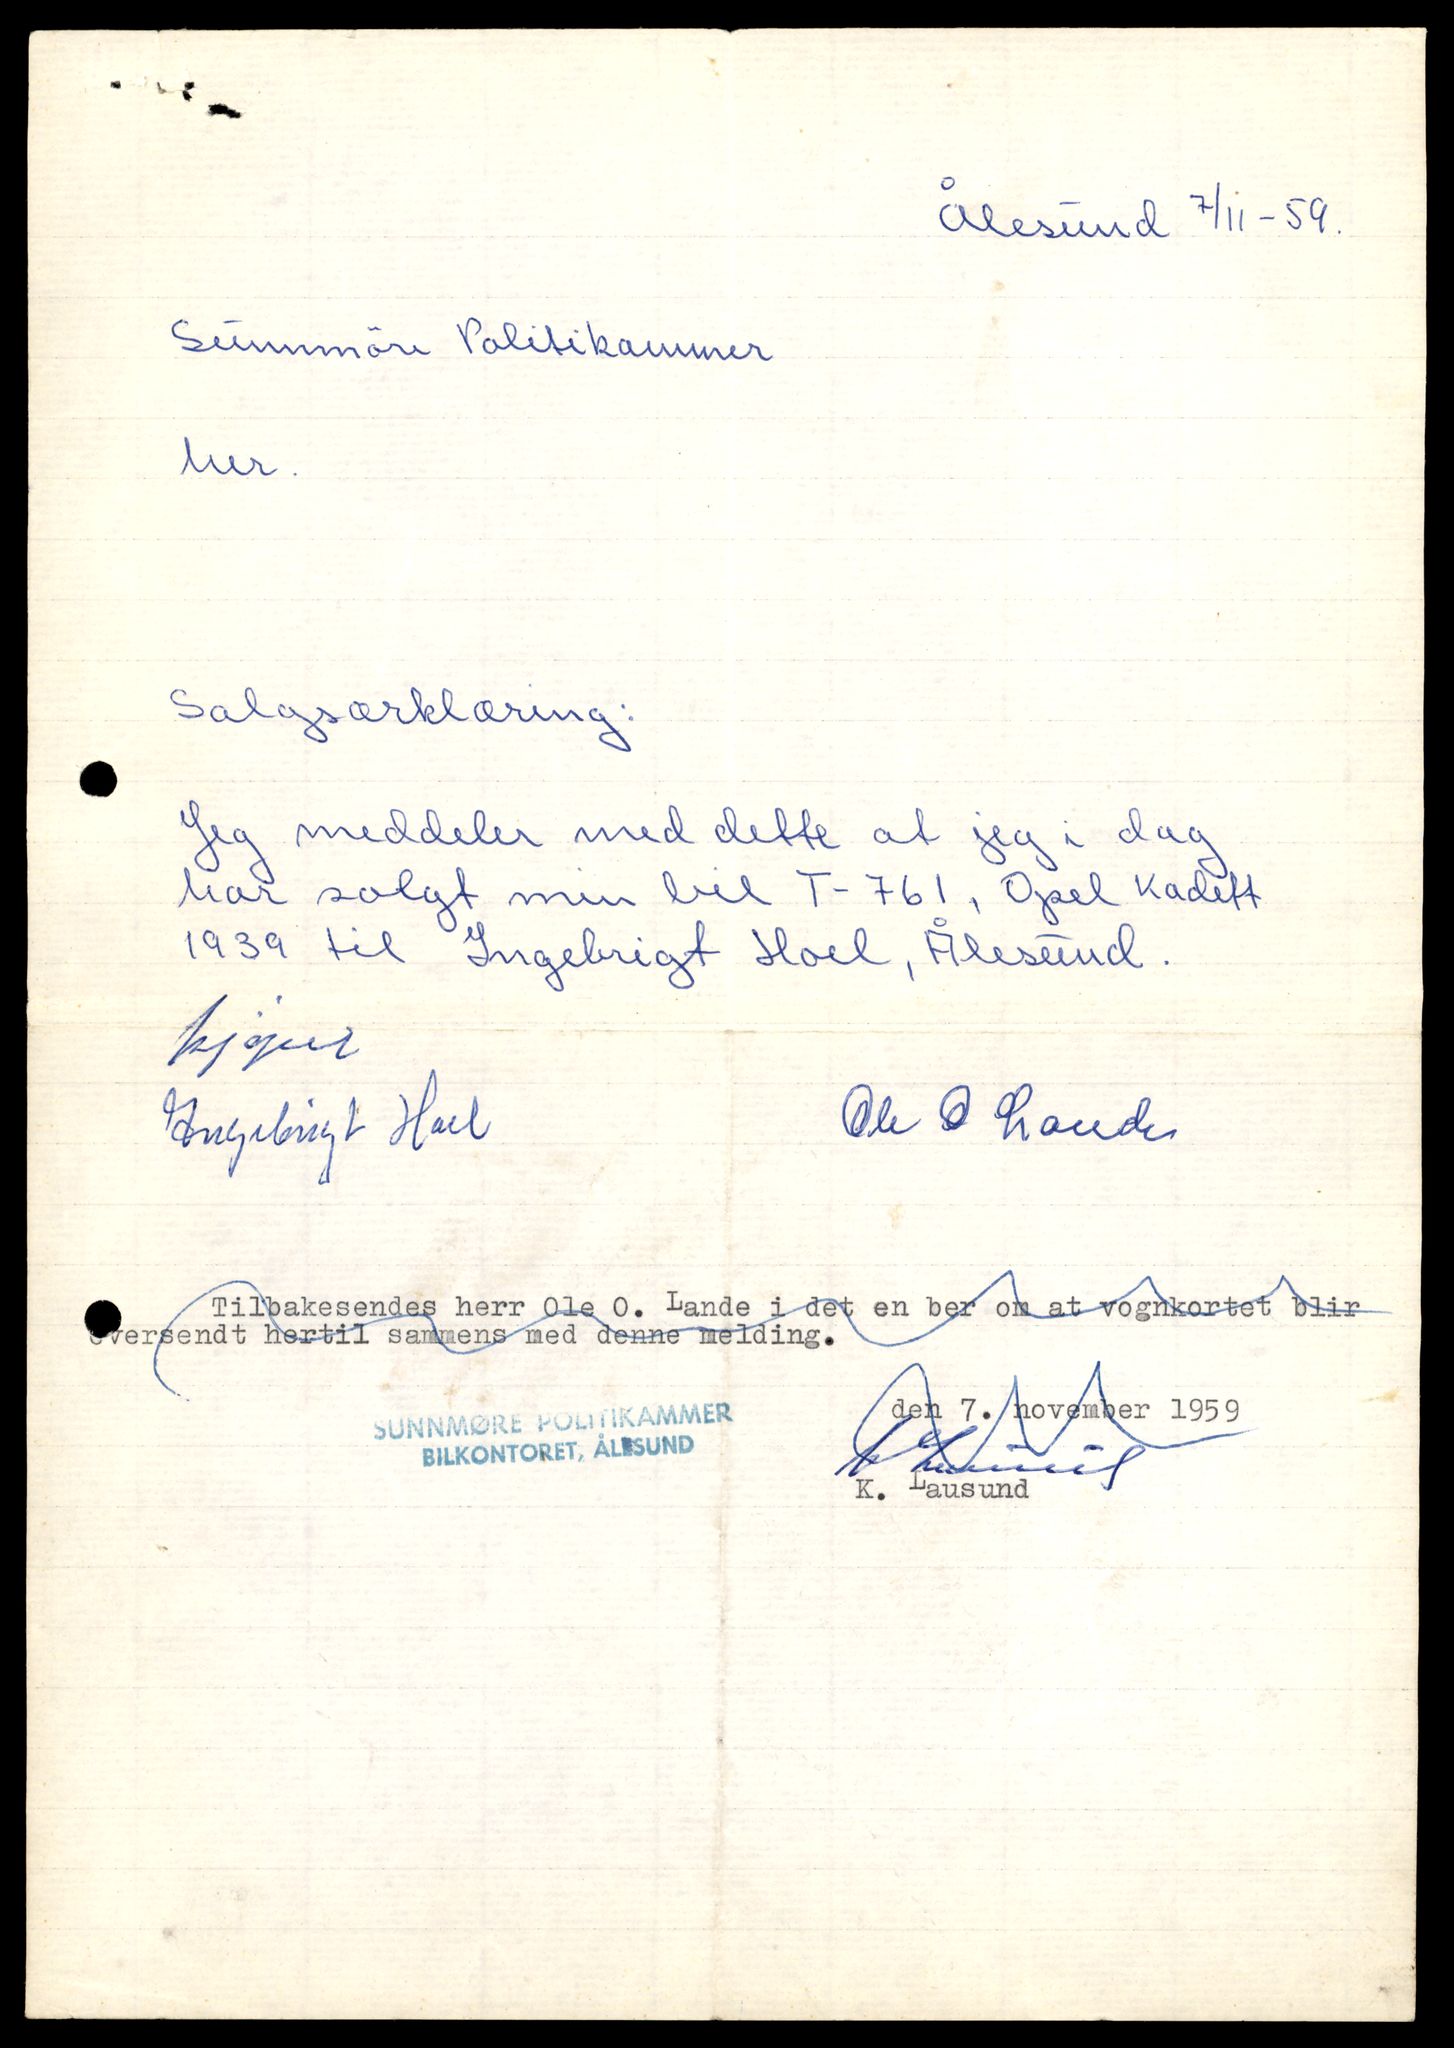 Ålesund 7/11-59.
Sunnmöre Politikammer
her.
Salgsærklæring:
Jeg meddeler med dette at jeg i dag
har solgt min bil T-761, Opel Kadett
1939 til Ingebrigt Hoel, Ålesund.
kjøper
Ingebrigt Hoel
Ole O Lande
Tilbakesendes herr Ole O. Lande i det en ber om at vognkortet blir
oversendt hertil sammens med denne melding.
den 7. november 1959
SUNNMØRE POLITIKAMMER
BILKONTORET, ÅLESUND
K. Lausund